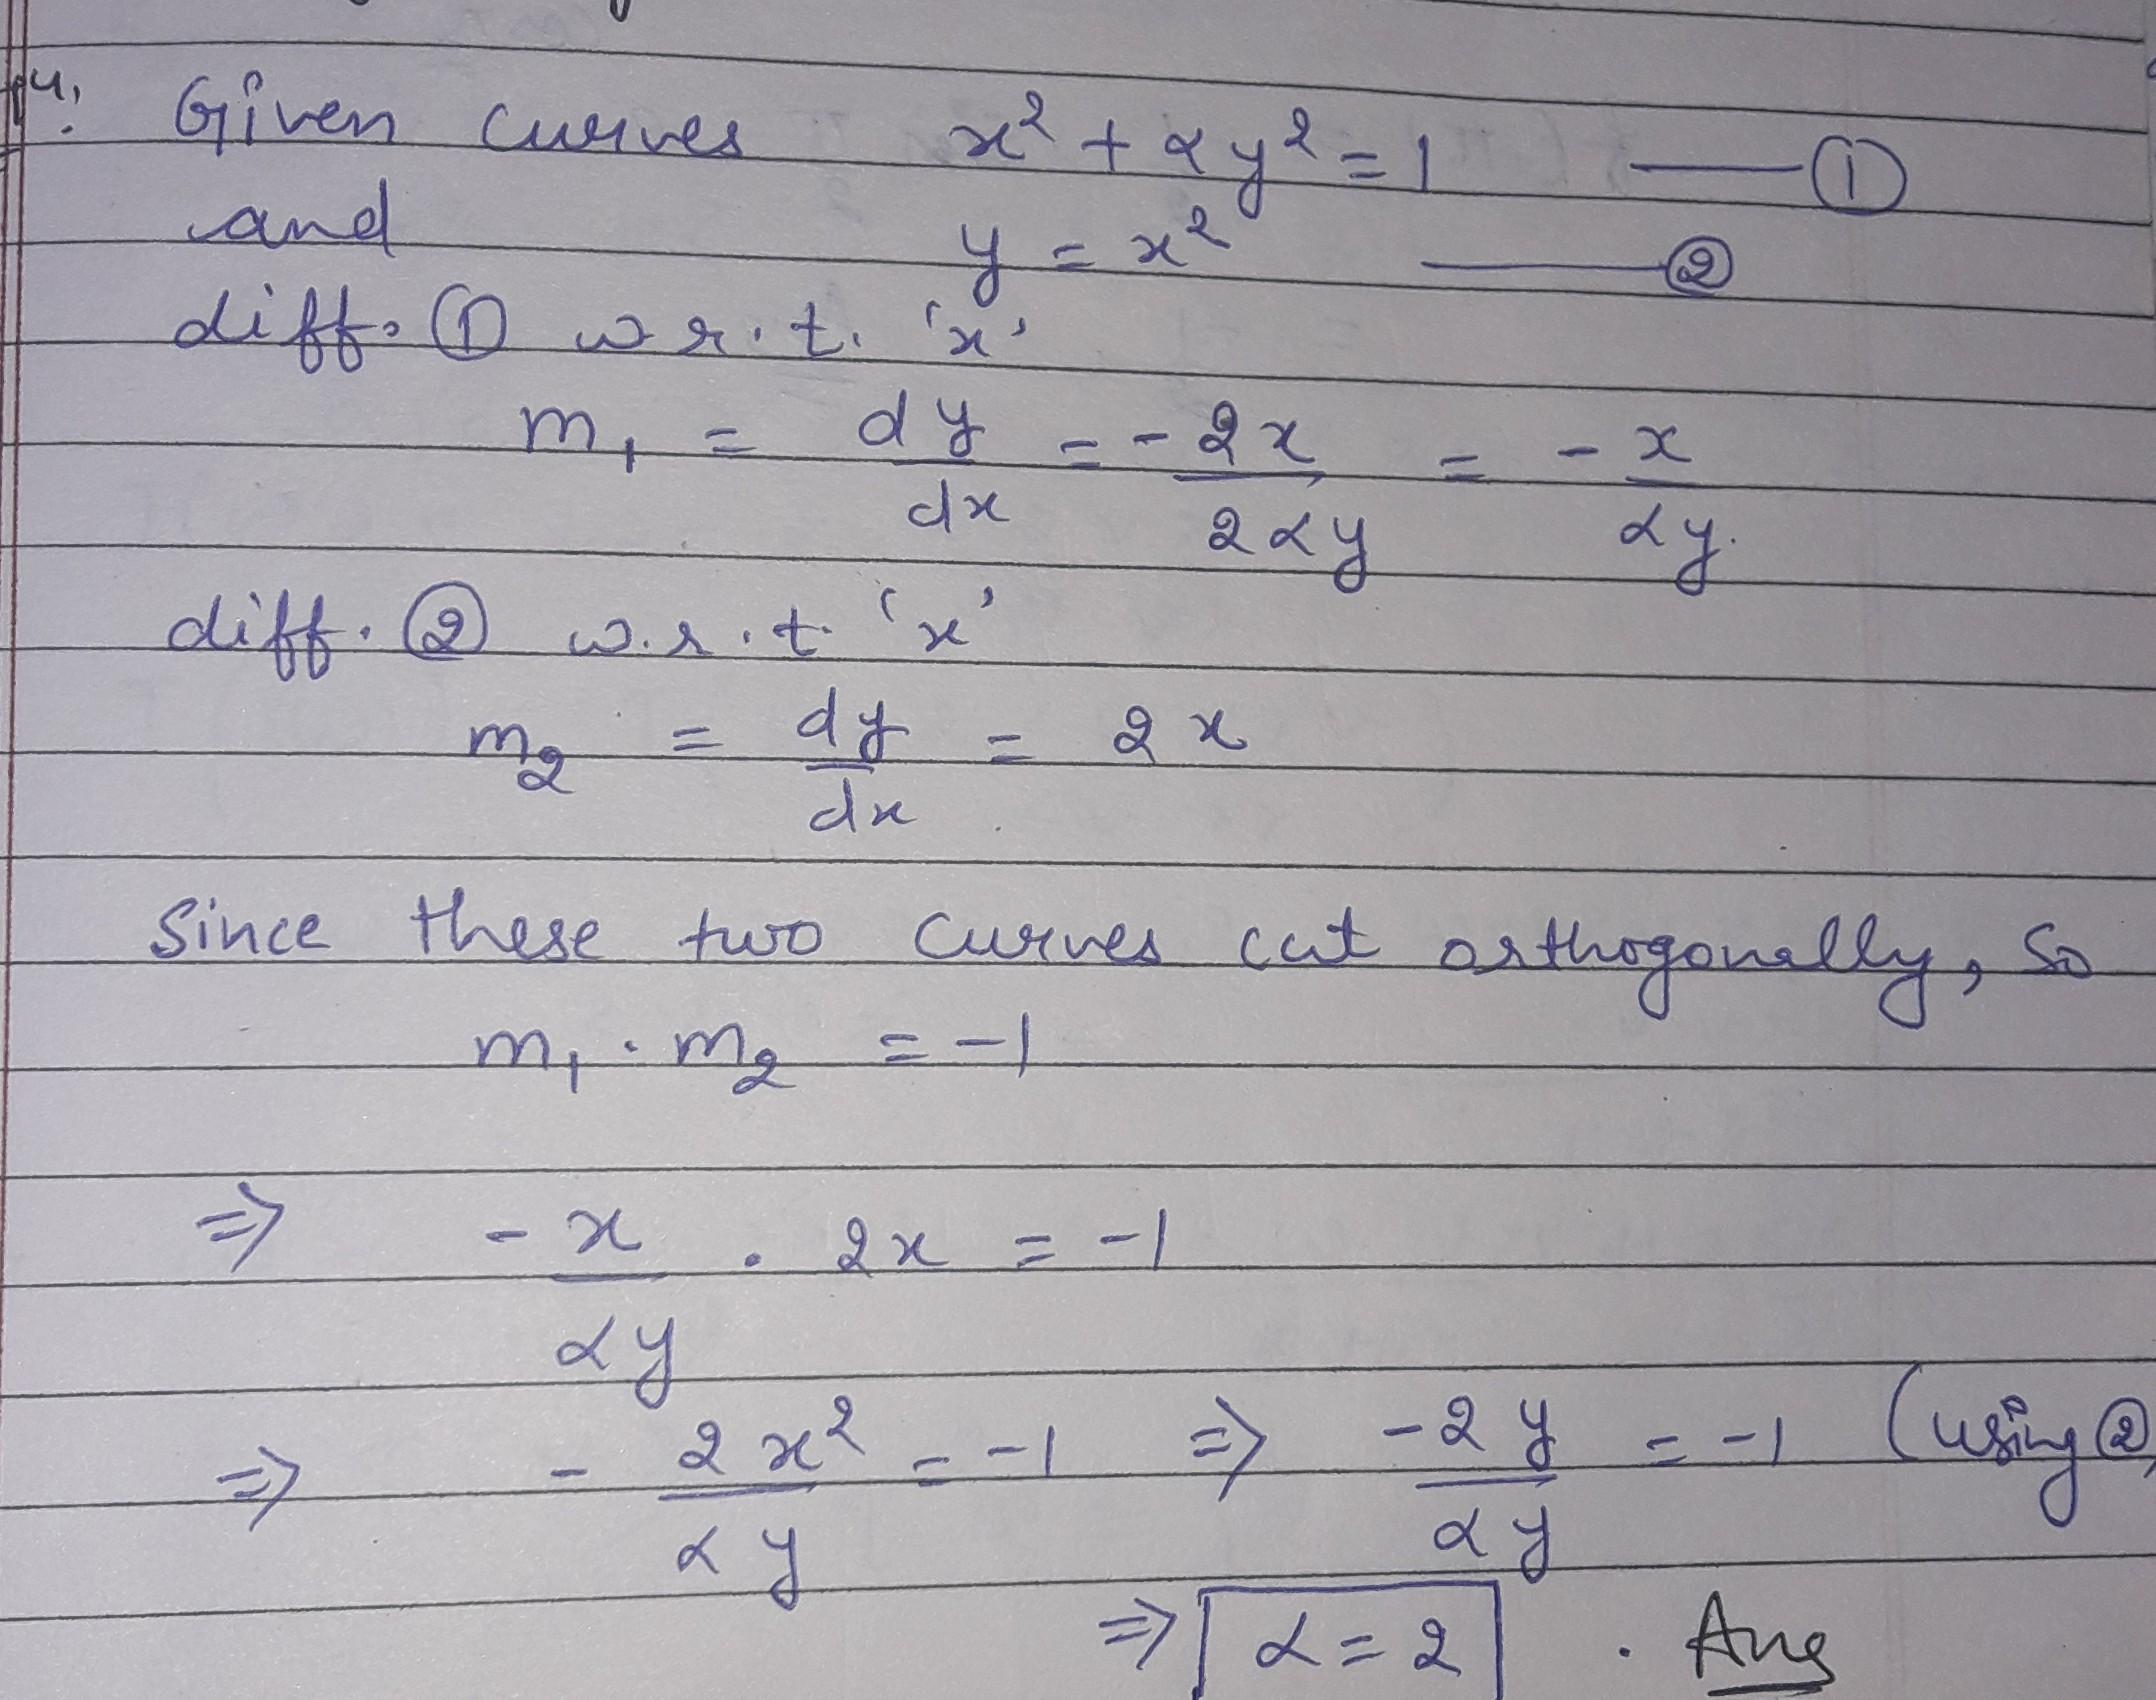 Given curves x² + αy² = 1 —— ①
and y = x² —— ②
diff. ① w r.t. 'x'
m₁ = dy/dx = -2x/2αy = -x/αy.
diff. ② w.r.t. 'x'
m₂ = dy/dx = 2x
Since these two curves cut orthogonally, So
m₁ . m₂ = -1
⇒ -x/αy . 2x = -1
⇒ -2x²/αy = -1 ⇒ -2y/αy = -1 (using ②)
⇒ α = 2 . Ans